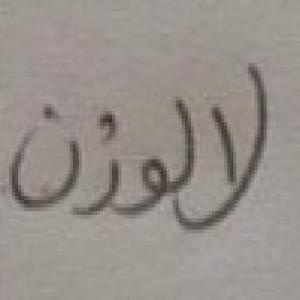 لالوزن